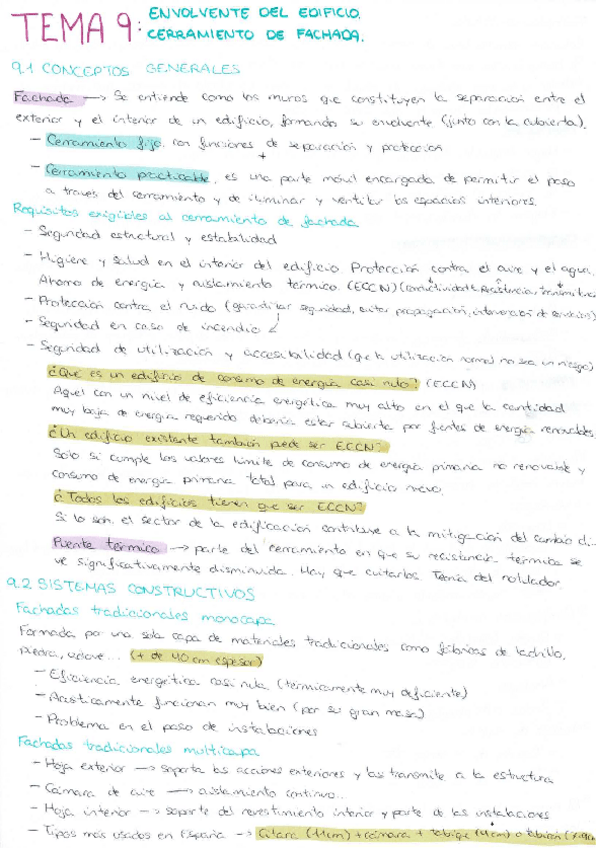 TEMA 9: ENVOLVENTE DEL EDIFICIO.
CERRAMIENTO DE FACHADA.
9.1 CONCEPTOS GENERALES
Fachada → Se entiende como los muros que constituyen la separación entre el
exterior y el interior de un edificio, formando su envolvente (junto con la cubierta).
- Cerramiento fijo, con funciones de separación y protección
+
- Cerramiento practicable, es una parte móvil encargada de permitir el paso
a través del cerramiento y de iluminar y ventilar los espacios interiores.
Requisitos exigibles al cerramiento de fachada
- Seguridad estructural y estabilidad
- Higiene y salud en el interior del edificio. Protección contra el aire y el agua.
Ahorro de energía y aislamiento térmico. (ECCN) (conductividad, resistencia, transmitancia
- Protección contra el ruido (garantizar seguridad, evitar propagación, intervención de servicios)
- Seguridad en caso de incendio
- Seguridad de utilización y accesibilidad (que la utilización normal no sea un riesgo)
¿Qué es un edificio de consumo de energía casi nulo? (ECCN)
Aquel con un nivel de eficiencia energética muy alto en el que la cantidad
muy baja de energía requerida debería estar cubierta por fuentes de energía renovables.
¿Un edificio existente también puede ser ECCN?
Solo si cumple los valores límite de consumo de energía primaria no renovable y
consumo de energía primaria total para un edificio nuevo.
¿Todos los edificios tienen que ser ECCN?
Si lo son, el sector de la edificación contribuye a la mitigación del cambio cli..
Puente térmico → parte del cerramiento en que su resistencia térmica se
ve significativamente disminuida. Hay que evitarlos. Teoría del rotulador.
9.2 SISTEMAS CONSTRUCTIVOS
Fachadas tradicionales monocapa
Formada por una sola capa de materiales tradicionales como fábricas de ladrillo,
piedra, adobe... (+ de 40 cm espesor)
- Eficiencia energética casi nula (térmicamente muy deficiente)
- Acústicamente funcionan muy bien (por su gran masa)
- Problema en el paso de instalaciones
Fachadas tradicionales multicapa
- Hoja exterior → soporta las acciones exteriores y las transmite a la estructura
- Cámara de aire → aislamiento continuo..
- Hoja interior → soporte del revestimiento interior y parte de las instalaciones
- Tipos más usados en España → Citara (11cm) + cámara + tabique (4cm) o tabicón